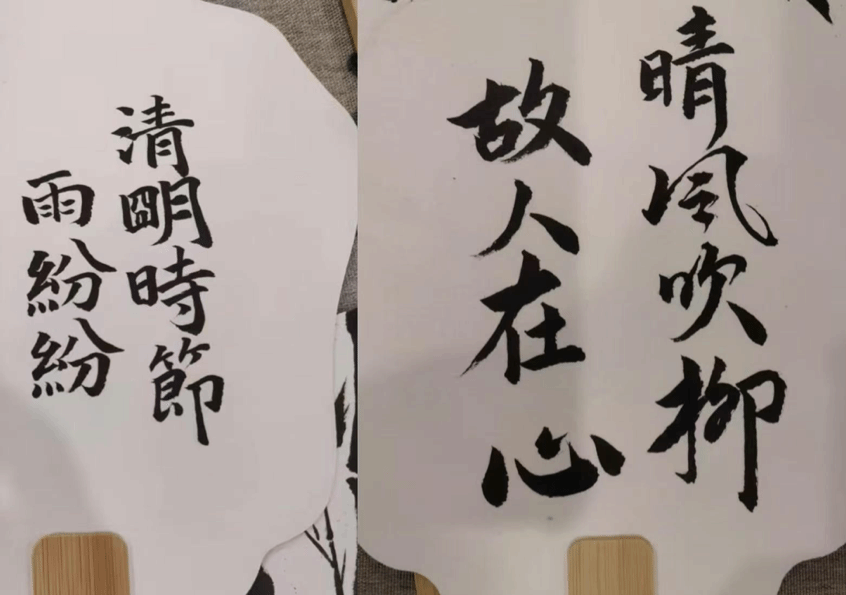 清朙時節
雨紛紛
晴风吹柳
故人在心